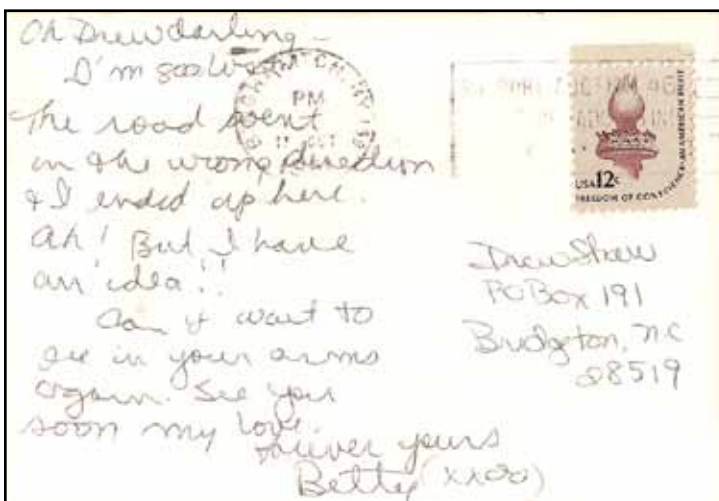 Oh Drew darling –
I'm soo lost.
The road went
in the wrong direction
& I ended up here.
Ah! But I have
an idea!!
Can't wait to
be in your arms
again. See you
soon my love.
Forever yours
Betty (xxoo)
PM
USA 12c
FREEDOM OF CONSCIENCE-AN AMERICAN RIGHT
Drew Shaw
PO Box 191
Bridgeton, NC
28519